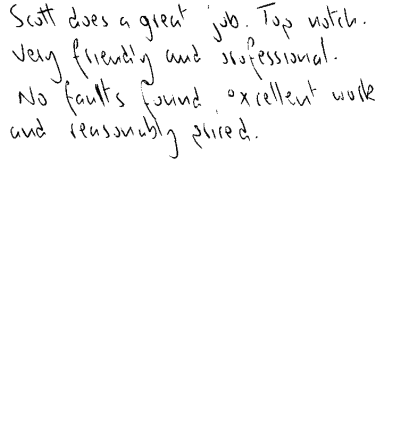 Scott does a great job. Top notch.
Very friendly and professional.
No faults found, excellent work
and reasonably priced.